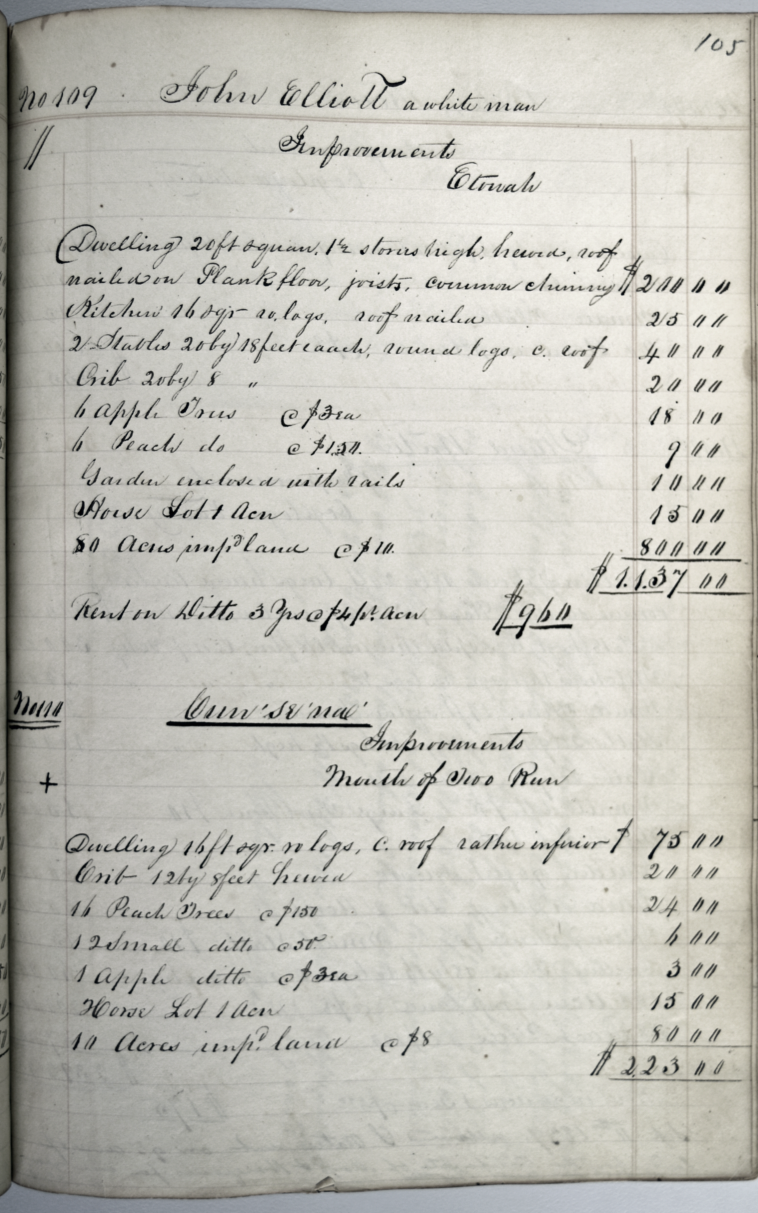 105
No 109 John Elliott a white man
//
Improvements
Etowah
(Dwelling) 20ft square, 1½ stories high, hewed, roof
nailed on Plank floor, joists, common chimney $200 00
Kitchen 16 sqr ro. logs, roof nailed 25 00
2 Stables 20 by 18 feet each, round logs, c. roof 40 00
Crib 20 by 8 " 20 00
6 Apple Trees @ $3 ea 18 00
6 Peach do @ $1.50. 9 00
Garden enclosed with rails 10 00
Horse Lot 1 Acre 15 00
80 Acres imp'd land @ $10. 800 00
$1.137 00
Rent on Ditto 3 Yrs @ $4 pr. acre $960
No 110
Improvements
+ Mouth of Two Run
Dwelling 16 ft sqr. ro logs, c. roof rather inferior $ 75 00
Crib 12 by 8 feet hewed 20 00
16 Peach Trees @ $150 24 00
12 Small ditto @ 50c 6 00
1 Apple ditto @ $3 ea 3 00
Horse Lot 1 Acre 15 00
10 Acres imp'd. land @ $8 80 00
$223 00